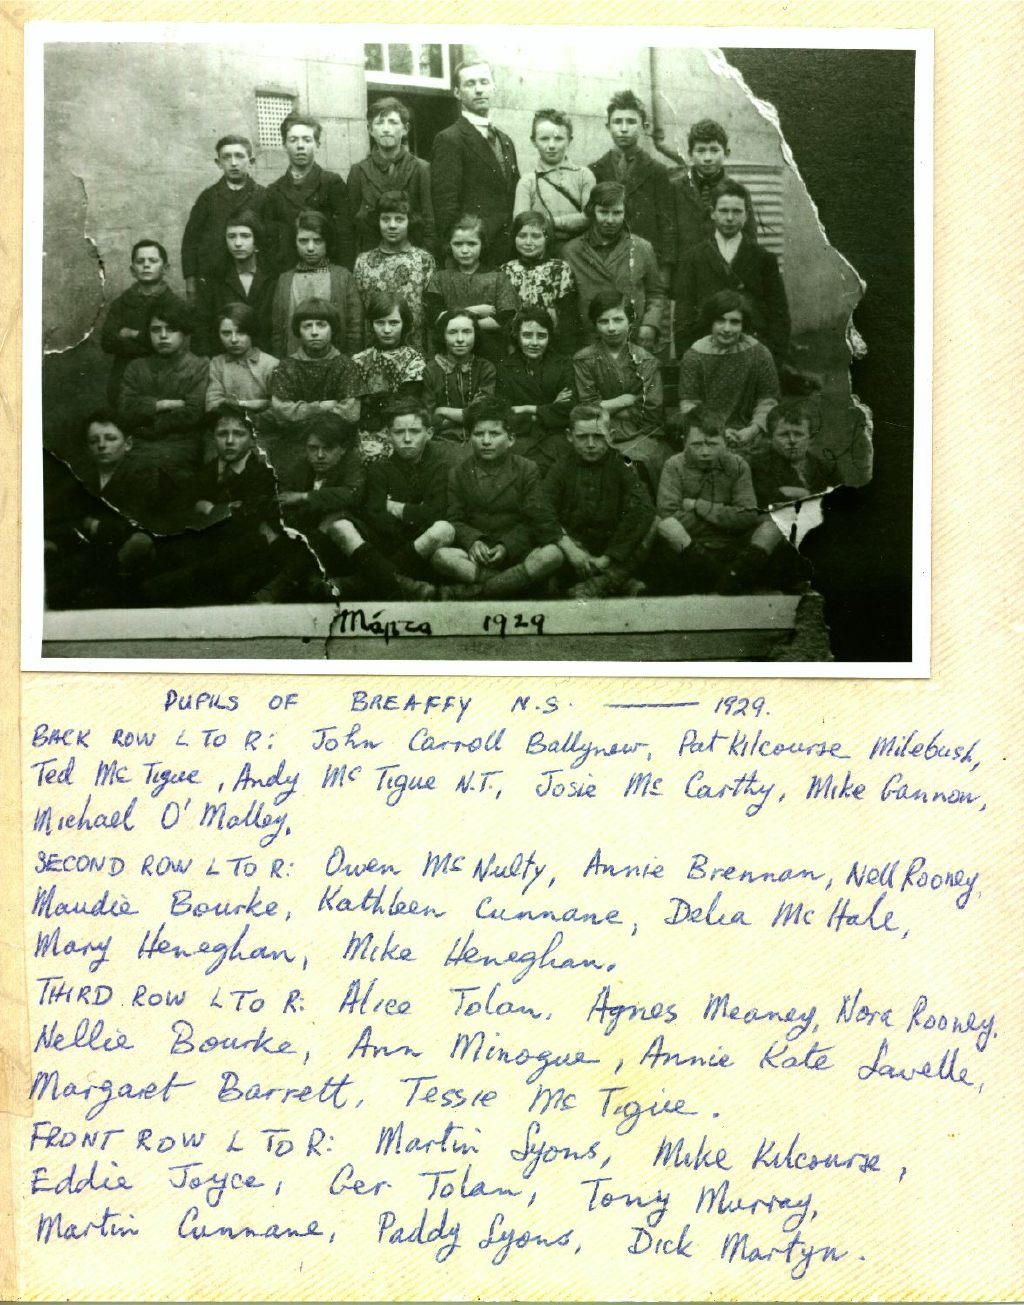 Márta 1929
PUPILS OF BREAFFY N.S. —— 1929.
BACK ROW L TO R: John Carroll Ballynew, Pat Kilcourse Milebush,
Ted Mc Tigue, Andy Mc Tigue N.T., Josie Mc Carthy, Mike Gannon,
Michael O' Malley.
SECOND ROW L TO R: Owen Mc Nulty, Annie Brennan, Nell Rooney,
Maudie Bourke, Kathleen Cunnane, Delia Mc Hale,
Mary Heneghan, Mike Heneghan.
THIRD ROW L TO R: Alice Tolan, Agnes Meaney, Nora Rooney,
Nellie Bourke, Ann Minogue, Annie Kate Lavelle,
Margaret Barrett, Tessie Mc Tigue.
FRONT ROW L TO R: Martin Lyons, Mike Kilcourse,
Eddie Joyce, Ger Tolan, Tony Murray,
Martin Cunnane, Paddy Lyons, Dick Martyn.